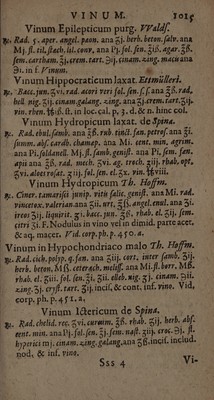 VINUM. 1015
Vinum Epilepticum purg. VValdf.
℞. Rad. c. aper. angel. paon. ana ʒj. herb. beton. salv. ana
Mj. fl. til. stœch. lil. conv. ana Pj. fol. sen. ʒiß. agar. ʒß.
sem. cartham. ʒj. crem. tart. ℈ij. cinam. zing. macu ana
℈i. in f. Vinum.
Vinum Hippocraticum laxat. Ettmülleri.
℞. Bacc. jun. ʒvi. rad. acori veri fol. sen. s. s. ana ʒß. rad.
hell. nig. ʒij. cinam. galang. zing. ana ʒj. crem. tart. ʒij.
vin. rhen. ℔iß. fl. in loc. cal. p. 3. d. & n. hinc col.
Vinum Hydropicum laxat. de Spina.
℞. Rad. ebul. samb. ana ʒß. rub. tinct. fan. petros. ana ʒi.
summ. abs. cardb. chamap. ana Mi. cent. min. agrim.
ana Pi. soldanell. Mj. fl. samb. genist. ana Pi. sem. fœn.
apii ana ʒß. rad. mech. ʒvi. ag. troch. ʒiij. rhab. opt.
ʒvi. aloes rosat. ʒiij. fol. sen. el. ʒx. vin. ℔viij.
Vinum Hydropicum Th. Hoffm.
℞. Ciner. tamarisci junip. vitis salic. genist. ana Mi. rad.
vincetox. valerian. ana ʒij. urt. ʒß. angel. enul. ana ʒi.
ireos ʒij. liquirit. gi. bacc. jun. ʒß. rhab. el. ʒij. sem.
citri ʒi. F. Nodulus in vino vel in dimid. parte acet.
& aq. macet. Vid. corp. ph. p. 450. a.
Vinum in Hypochondriaco malo Th. Hoffm.
℞. Rad. cich. polyp. q. fœn. ana ʒiij. cort. inter samb. ʒij.
herb. beton. Mß. ceterach, meliss. ana Mi. fl. borr. Mß.
rhab. el. ʒiij. fol. sen. ʒi. agar. ʒii. elleb. nig. gi. cinam. ʒiij.
zing. ʒj. cryst. tart. ʒij. incis. & cont. inf. vino. Vid.
corp. ph. p. 451. a.
Vinum Ictericum de Spina.
℞. Rad. chelid. rec. ʒvi. curcum. ʒß. rhab. ʒij. herb. abs.
cent. min. ana Pj. fol. sen. ʒj. sem. nast. ʒiij. croc. ℈j. fl.
hyperici mj. cinam. zing. galang. ana ʒß. incis. includ.
nod. & inf. vino.
Sss 4 Vi-